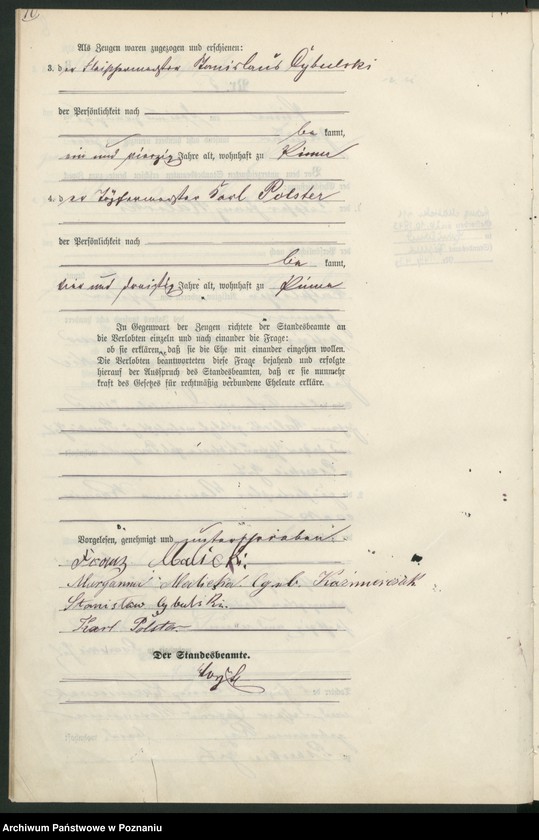 Als Zeugen waren zugezogen und erschienen:
3. der Fleischermeister Stanislaus Cybulski
der Persönlichkeit nach
be kannt,
ein und vierzig Jahre alt, wohnhaft zu Pinne
4. der Töpfermeister Karl Polster
der Persönlichkeit nach
be kannt,
vier und dreißig Jahre alt, wohnhaft zu Pinne
In Gegenwart der Zeugen richtete der Standesbeamte an
die Verlobten einzeln und nach einander die Frage:
ob sie erklären, daß sie die Ehe mit einander eingehen wollen.
Die Verlobten beantworteten diese Frage bejahend und erfolgte
hierauf der Ausspruch des Standesbeamten, daß er sie nunmehr
kraft des Gesetzes für rechtmäßig verbundene Eheleute erkläre.
Vorgelesen, genehmigt und unterschrieben
Franz Malicki.
Maryanna Malicka geb. Kaźmierczak
Stanisław Cybulski.
Karl Polster
Der Standesbeamte.
Archiwum Państwowe w Poznaniu